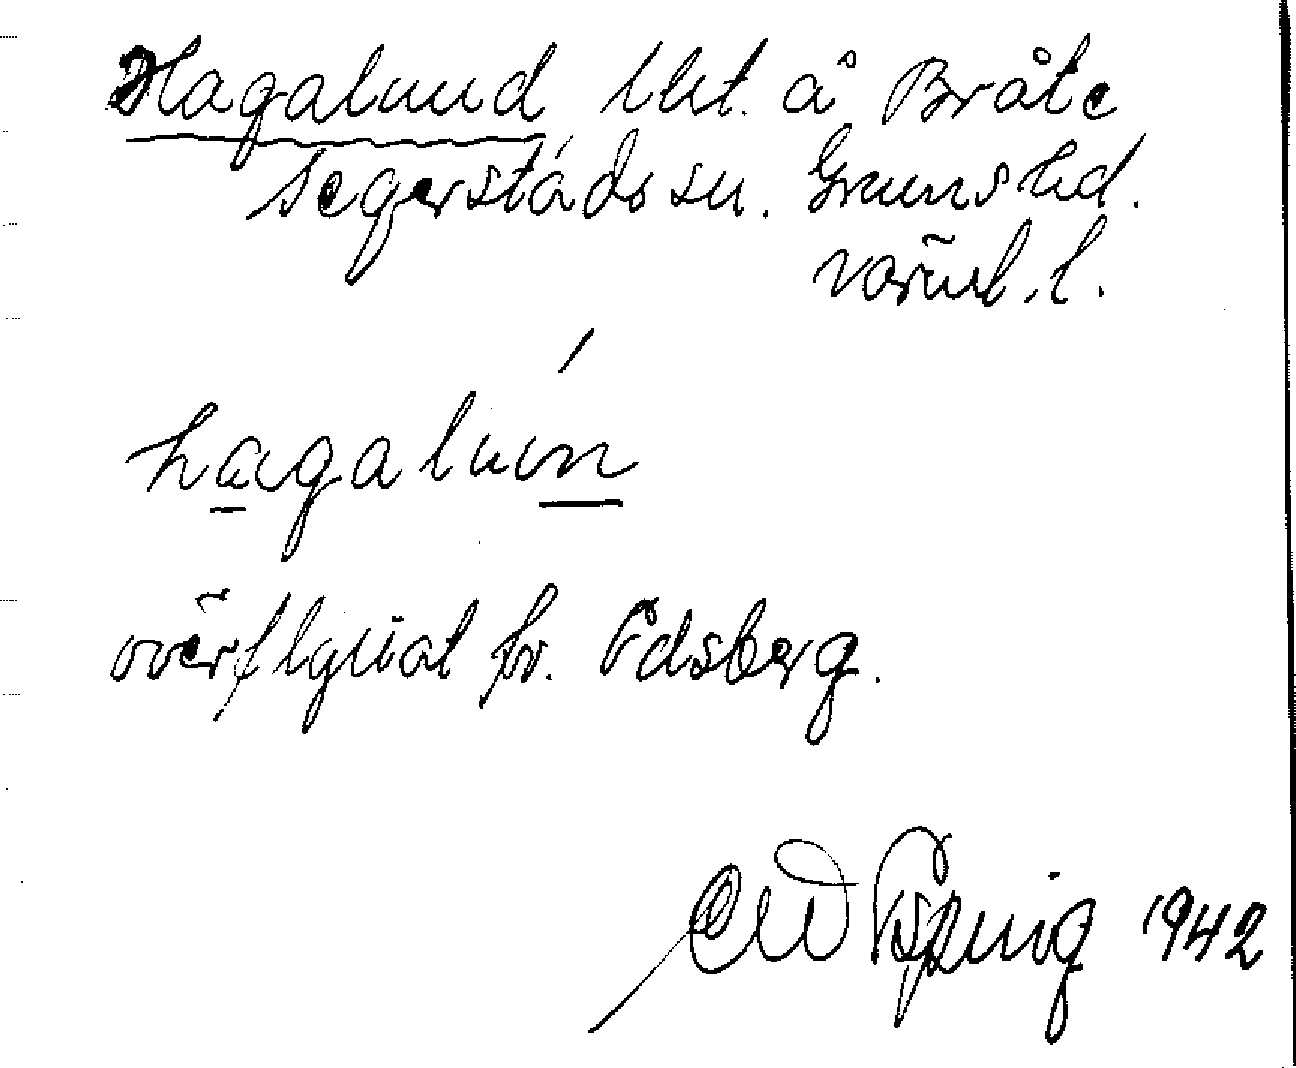 Hagalund lht. å Bråte
Segerstads sn. Grums hd.
Värml. l.
hagalun
överflyttat fr. Edsberg.
1942